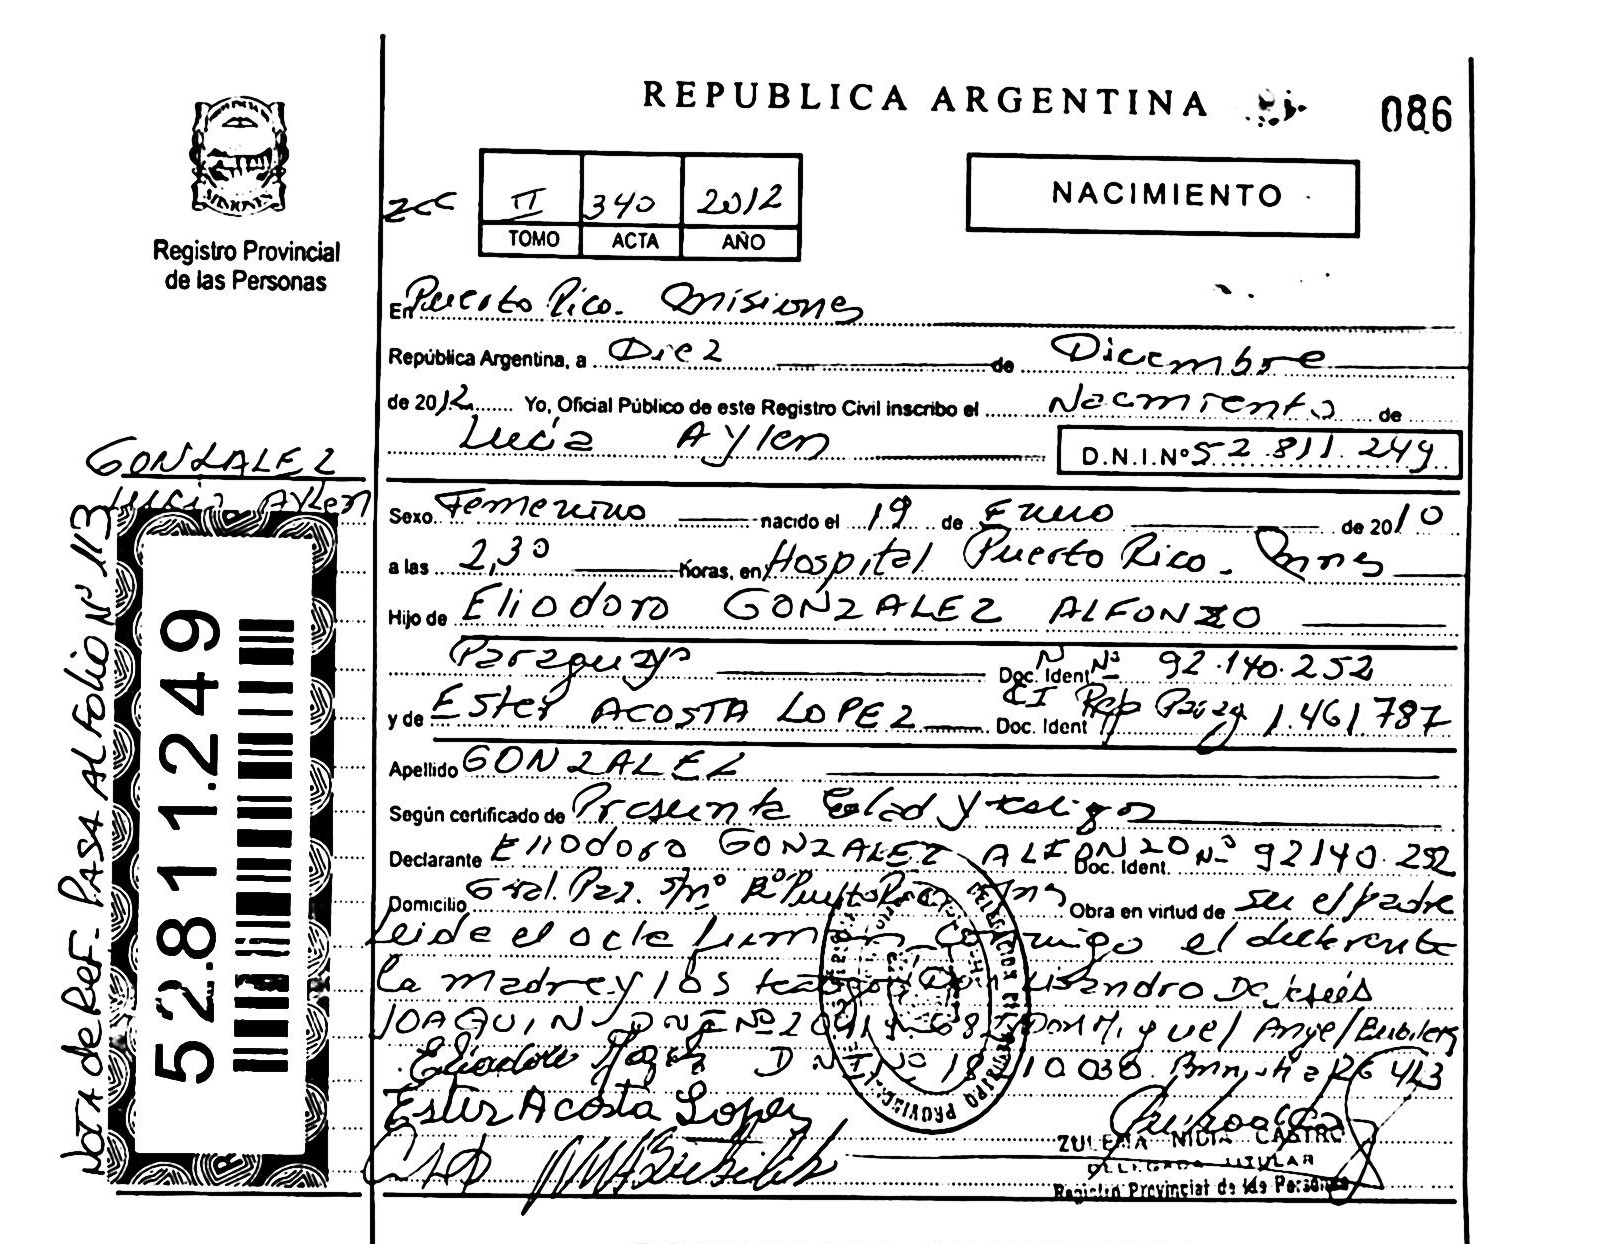 REPUBLICA ARGENTINA
086
Registro Provincial
de las Personas
II 340 2012
TOMO ACTA AÑO
NACIMIENTO
En Puerto Rico. Misiones
República Argentina, a Diez de Diciembre
de 2012 Yo, Oficial Público de este Registro Civil inscribo el Nacimiento de
Lucia Aylen D.N.I.Nº 52.811.249
GONZALEZ
Lucia Aylen
Sexo Femenino nacido el 19 de Enero de 2010
a las 2,30 horas, en Hospital Puerto Rico. Mnes
Hijo de Eliodoro GONZALEZ ALFONZO
Paraguayo Doc. Ident Nº 92.140.252
y de Ester ACOSTA LOPEZ Doc. Ident CI Rep Parag 1.461787
Apellido GONZALEZ
Según certificado de Presunta Edad y testigos
Declarante Eliodoro GONZALEZ ALFONZO Doc. Ident. Nº 92140.252
Domicilio Gral. Paz. s/nº Bº Puerto Rico Mns Obra en virtud de ser el padre
Leida el acta firman conmigo el declarante
la madre y los testigos Don Lisandro De Jesús
JOAQUIN DNI Nº Don Miguel Angel
DNI Nº 18 10 038.
Ester Acosta Lopez
ZULEMA NIDIA CASTRO
DELEGADA TITULAR
Registro Provincial de las Personas
NOTA de Ref. PASA AL FOLIO Nº 113
52.811.249